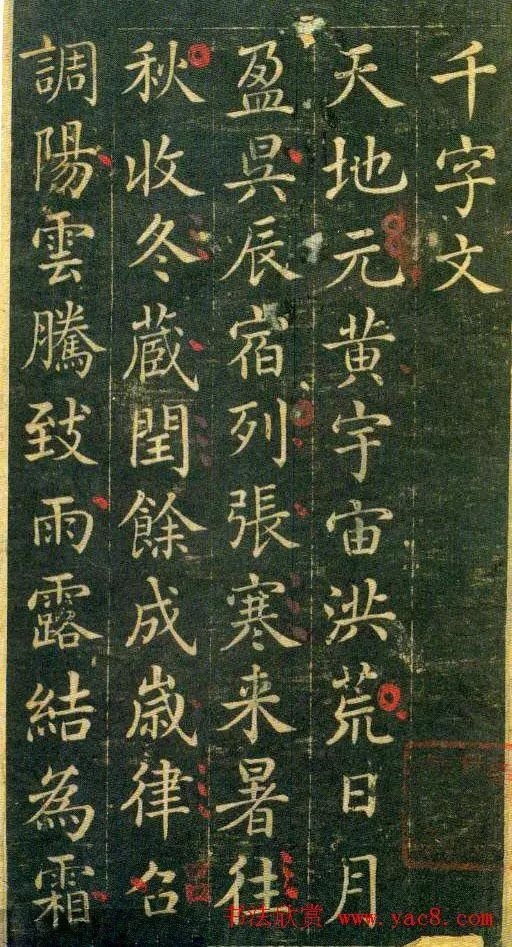 千字文
天地元黄宇宙洪荒日月
盈昃辰宿列張寒来暑往
秋收冬蔵閏餘成歳律召
調陽雲騰致雨露結為霜
书法欣赏 www.yac8.com